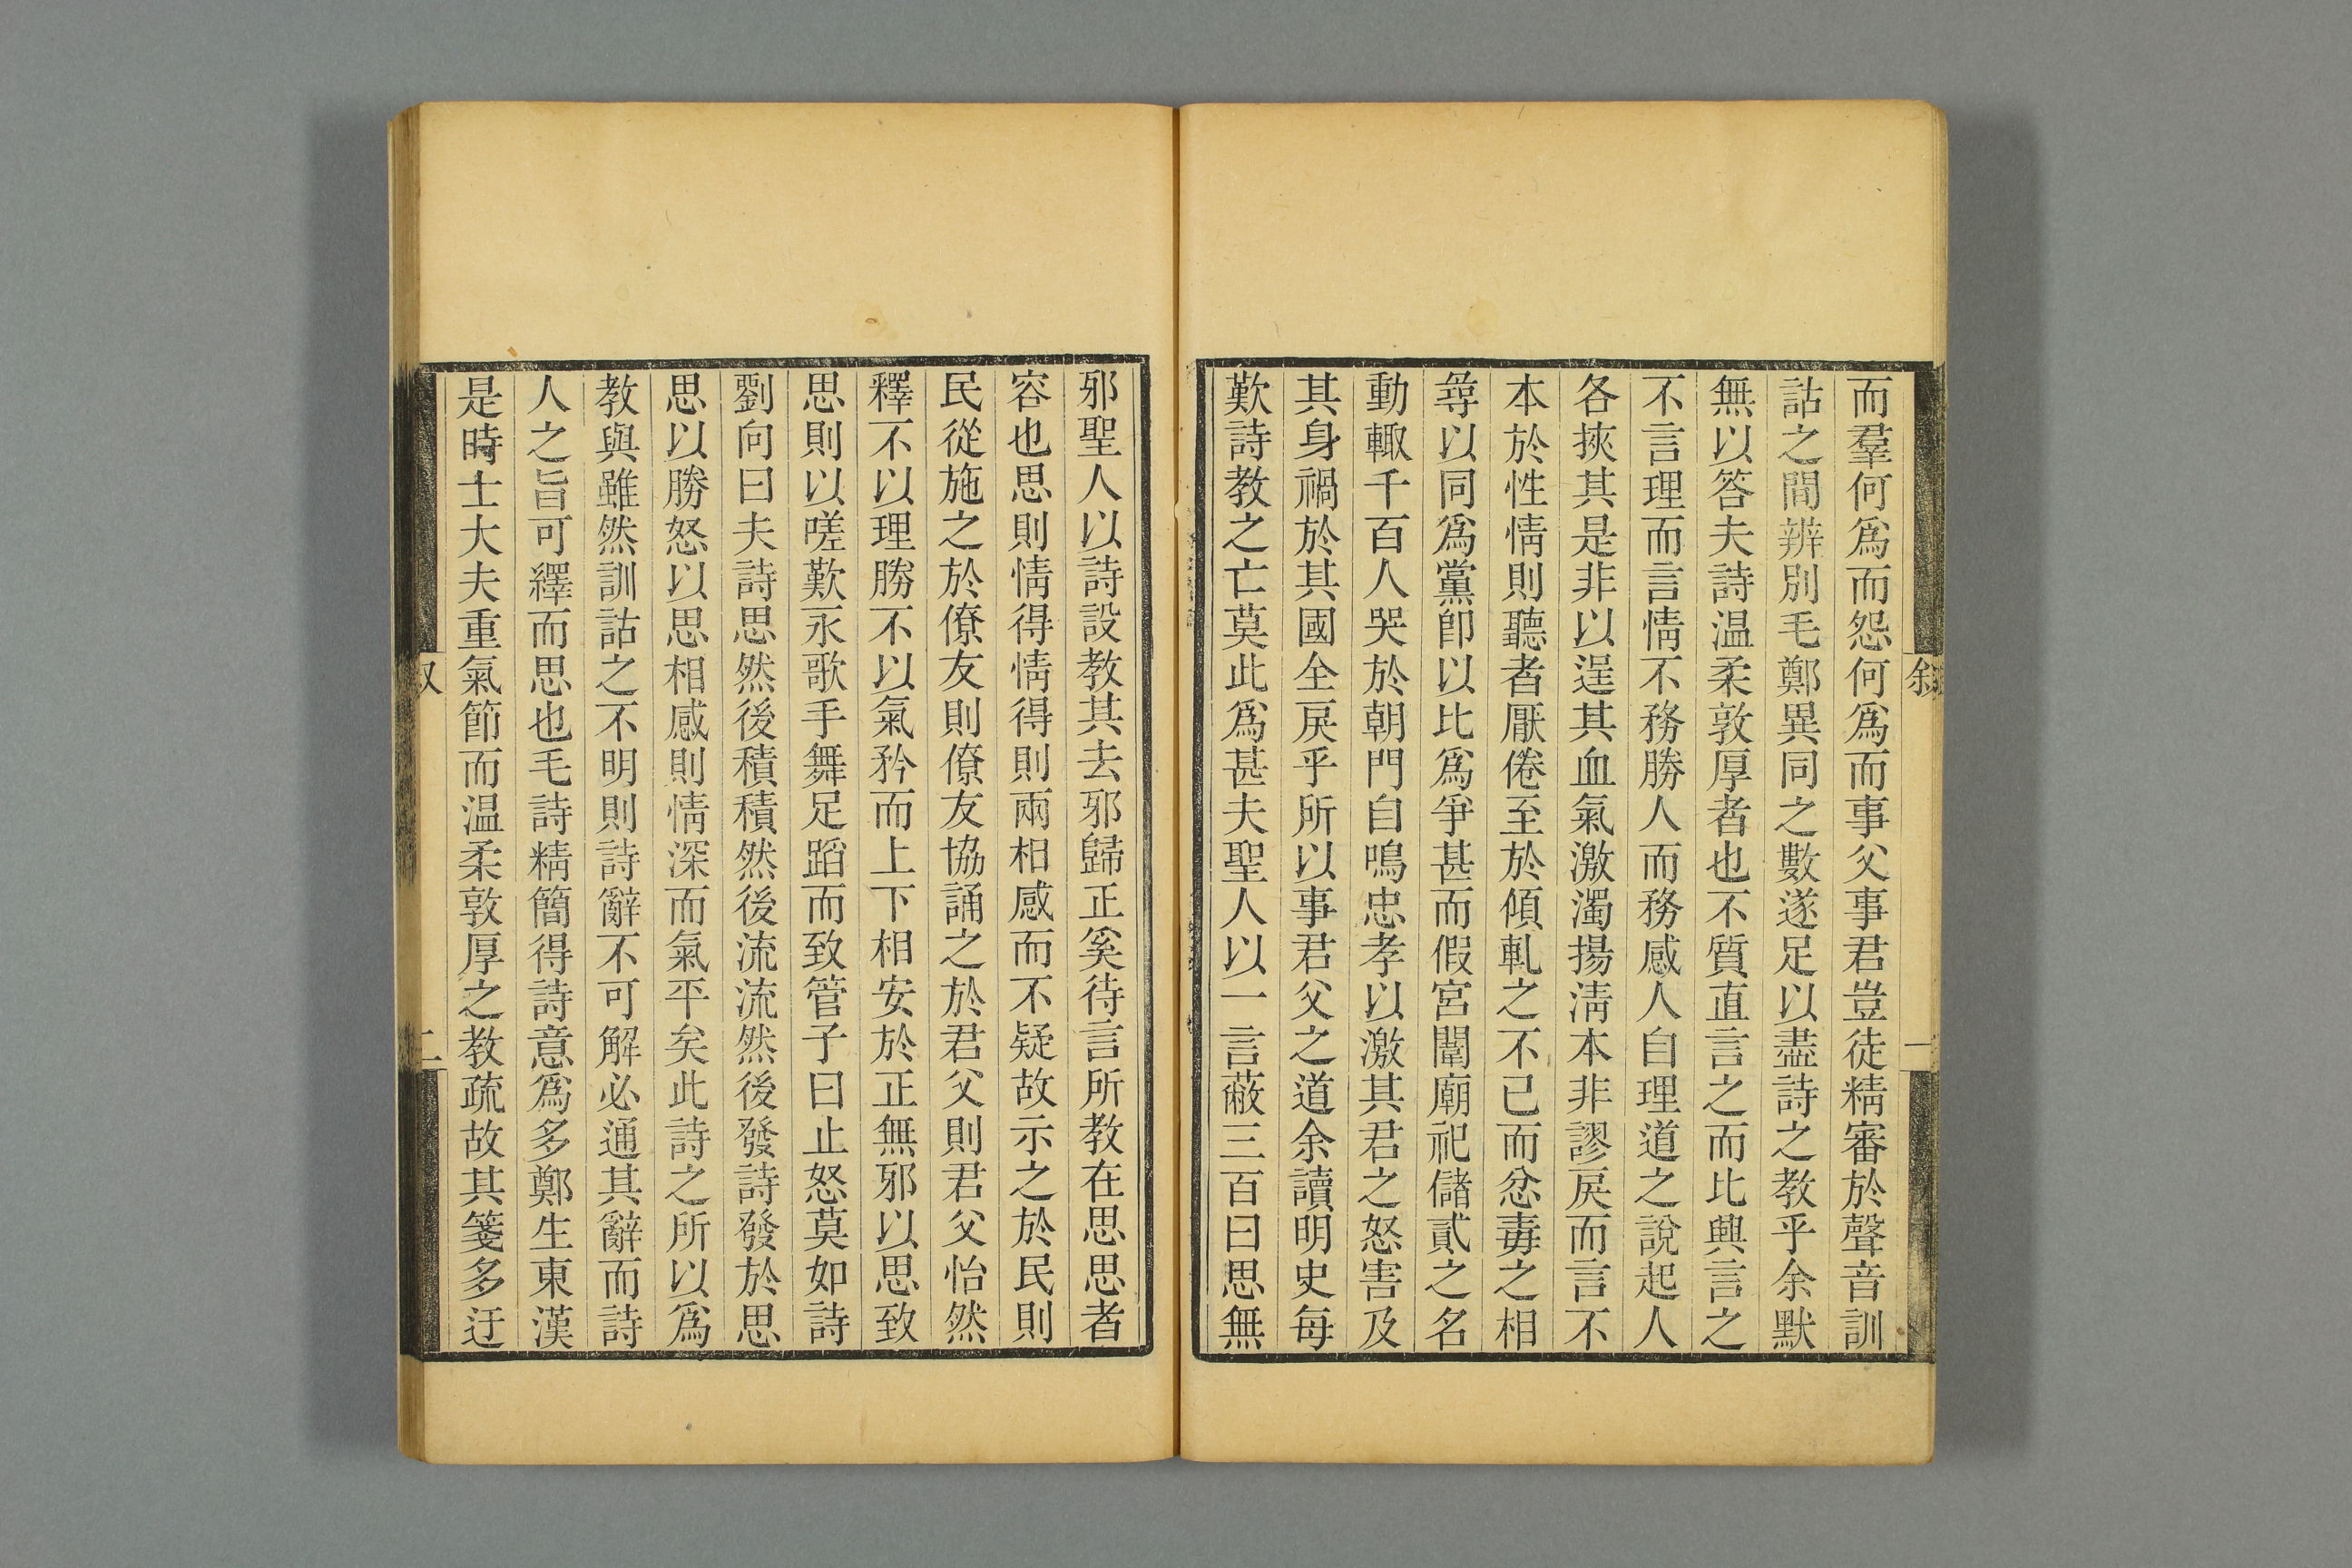 敘
一
而羣何爲而怨何爲而事父事君豈徒精審於聲音訓
詁之間辨別毛鄭異同之數遂足以盡詩之教乎余默
無以答夫詩温柔敦厚者也不質直言之而比興言之
不言理而言情不務勝人而務感人自理道之說起人
各挾其是非以逞其血氣激濁揚淸本非謬戾而言不
本於性情則聽者厭倦至於傾軋之不已而忿毒之相
尋以同爲黨卽以比爲爭甚而假宮闈廟祀儲貳之名
動輙千百人哭於朝門自鳴忠孝以激其君之怒害及
其身禍於其國全戾乎所以事君父之道余讀明史每
歎詩教之亡莫此爲甚夫聖人以一言蔽三百曰思無
邪聖人以詩設教其去邪歸正奚待言所教在思思者
容也思則情得情得則兩相感而不疑故示之於民則
民從施之於僚友則僚友協誦之於君父則君父怡然
釋不以理勝不以氣矜而上下相安於正無邪以思致
思則以嗟歎永歌手舞足蹈而致管子曰止怒莫如詩
劉向曰夫詩思然後積積然後流流然後發詩發於思
思以勝怒以思相感則情深而氣平矣此詩之所以爲
教與雖然訓詁之不明則詩辭不可解必通其辭而詩
人之旨可繹而思也毛詩精簡得詩意爲多鄭生東漢
是時士大夫重氣節而温柔敦厚之教疏故其箋多迂
二